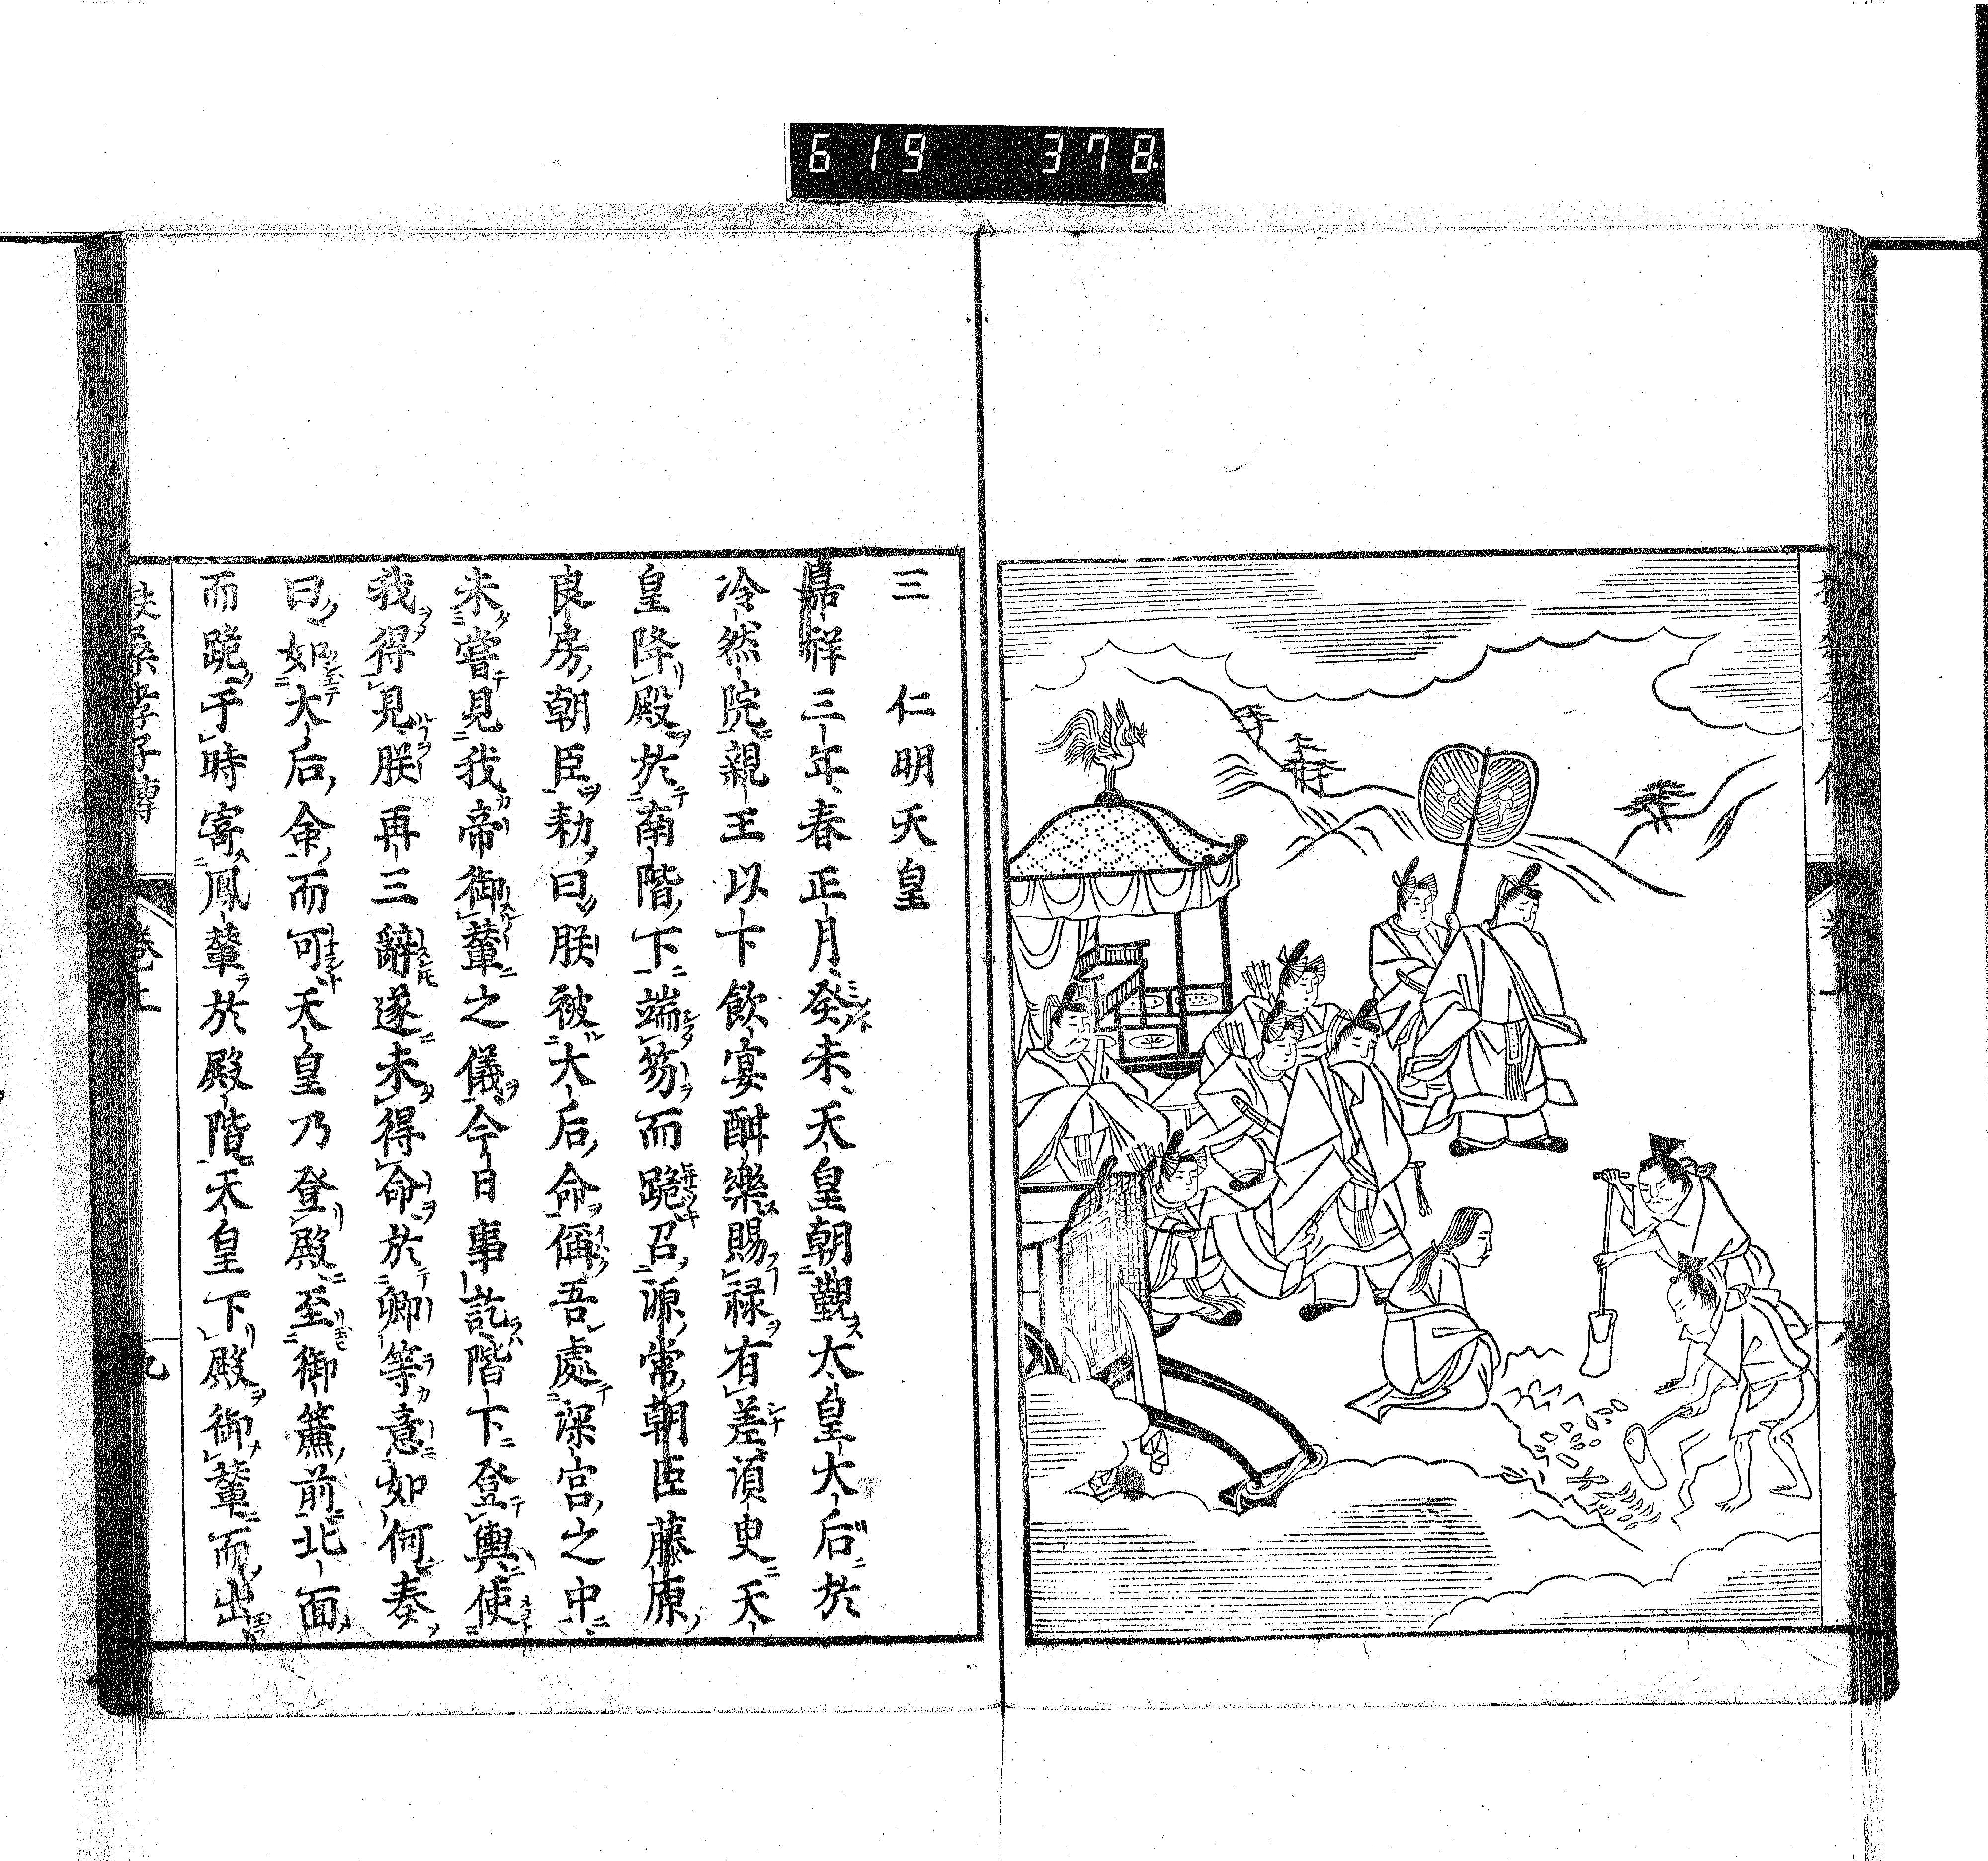 619 378
三 仁明天皇
嘉祥三年春正月癸未天皇朝覲太皇大后於
冷然院親王以下飲宴酣樂賜禄有差須臾天
皇降殿於南階下端笏而跪召源常朝臣藤原
良房朝臣勅曰朕被大后命偁吾處深宮之中
未嘗見我帝御輦之儀今日事訖階下登輿使
我得見朕再三辭遂未得命於卿等意如何奏
曰如大后命而可天皇乃登殿至御簾前北面
而跪于時寄鳳輦於殿階天皇下殿御輦而出
扶桑孝子傳 卷上 九